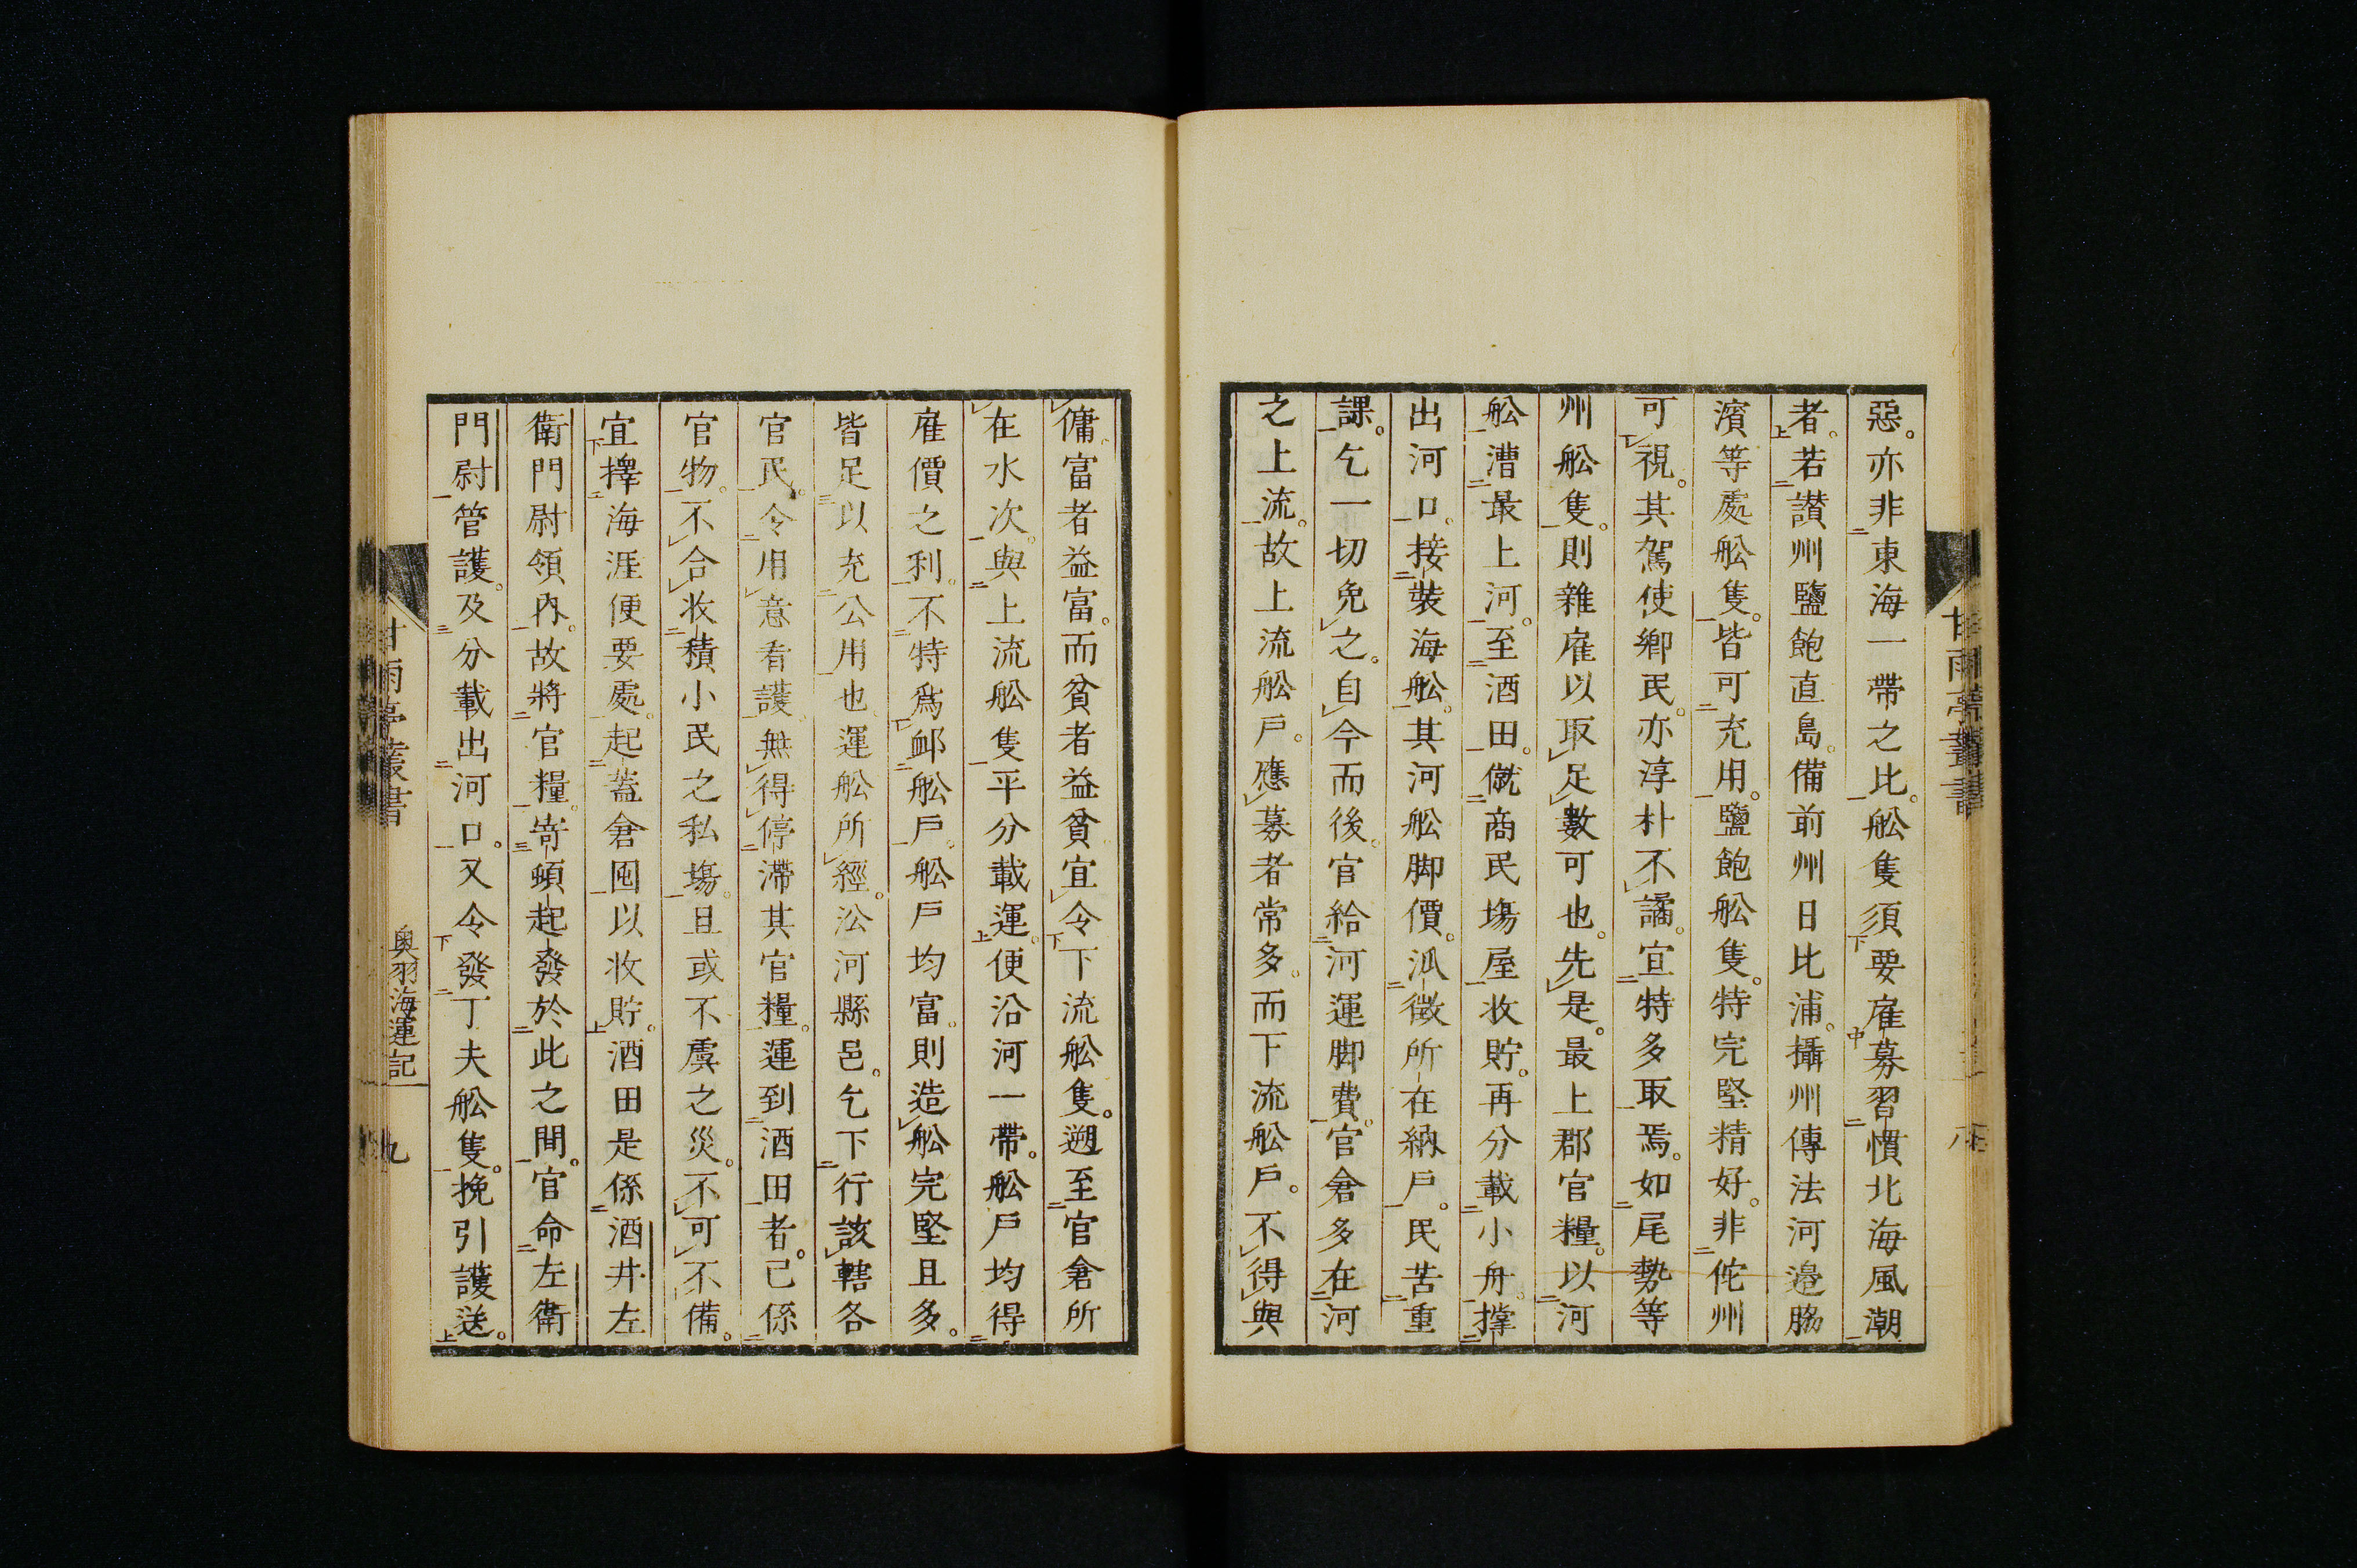 惡。亦非東海一帶之比。舩隻須要雇募習慣北海風潮
者。若讃州鹽飽直島。備前州日比浦。攝州傳法河邉脇
濱等處舩隻。皆可充用。鹽飽舩隻。特完堅精好。非佗州
可視。其駕使鄉民。亦淳朴不譎。宜特多取焉。如尾勢等
州舩隻。則雜雇以取足數可也。先是。最上郡官糧。以河
舩漕最上河。至酒田。僦商民塲屋收貯。再分載小舟。撑
出河口。接裝海舩。其河舩脚價。泒徵所在納戶。民苦重
課。乞一切免之。自今而後。官給河運脚費。官倉多在河
之上流。故上流舩戶。應募者常多。而下流舩戶。不得與
傭。富者益富。而貧者益貧。宜令下流舩隻。遡至官倉所
在水次。與上流舩隻平分載運。便沿河一帶。舩戶均得
雇價之利。不特爲卹舩戶。舩戶均富。則造舩完堅且多。
皆足以充公用也。運舩所經。沿河縣邑。乞下行該轄各
官民。令用意看護。無得停滯其官糧。運到酒田者。已係
官物。不合收積小民之私塲。且或不虞之災。不可不備。
宜擇海涯便要處。起蓋倉囤以收貯。酒田是係酒井左
衛門尉領內。故將官糧。寄頓起發於此之間。官命左衛
門尉管護。及分載出河口。又令發丁夫舩隻。挽引護送。
甘雨亭叢書
奥羽海運記
九
甘雨亭叢書